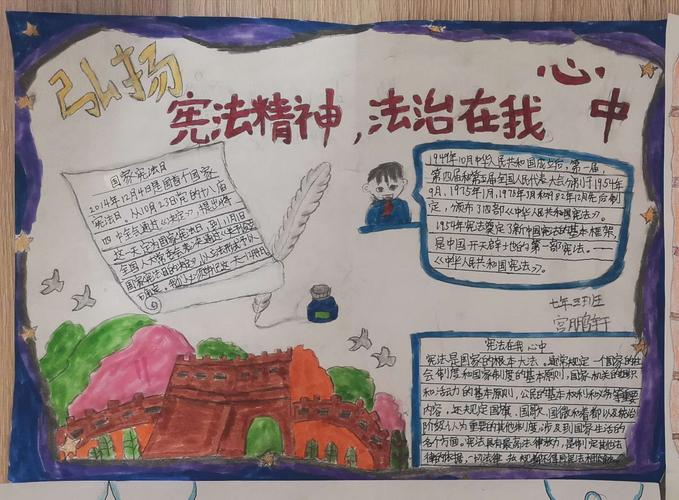 弘扬
宪法精神,法治在我心中
国家宪法日
2014年12月4日是国首个国家
宪法日，从10月23日的十八届
四中全会通过《决定》，提出将
这一天定为国家宪法日，到11月1日
全国人大常委会表
国家宪法日的决定》以立法形式予以
我们必须牢记这一天12月4日
1949年10月中华人民共和国成立后，第一届，
第四届和第五届全国人民代表大会分别于1954年
9月，1975年1月，1978年3月和1982年12月先后制
定，颁布了四部《中华人民共和国宪法》。
1954年宪法奠定了新中国宪法的基本框架，
是中国开天辟地的第一部宪法。——
《中华人民共和国宪法》。
七年三班
宫鹏轩
宪法在我心中
宪法是国家的根本大法，通常规定一个国家的社
会制度和国家制度的基本原则，国家机关的组织
和活动的基本原则，公民的基本权利和义务等重要
内容，还规定国旗，国歌，国徽和首都以及统治
阶级认为重要的其他制度，涉及到国家生活的
各个方面。宪法具有最高法律效力，是制定其他法
律的依据，一切法律、法规都不得同宪法相抵触